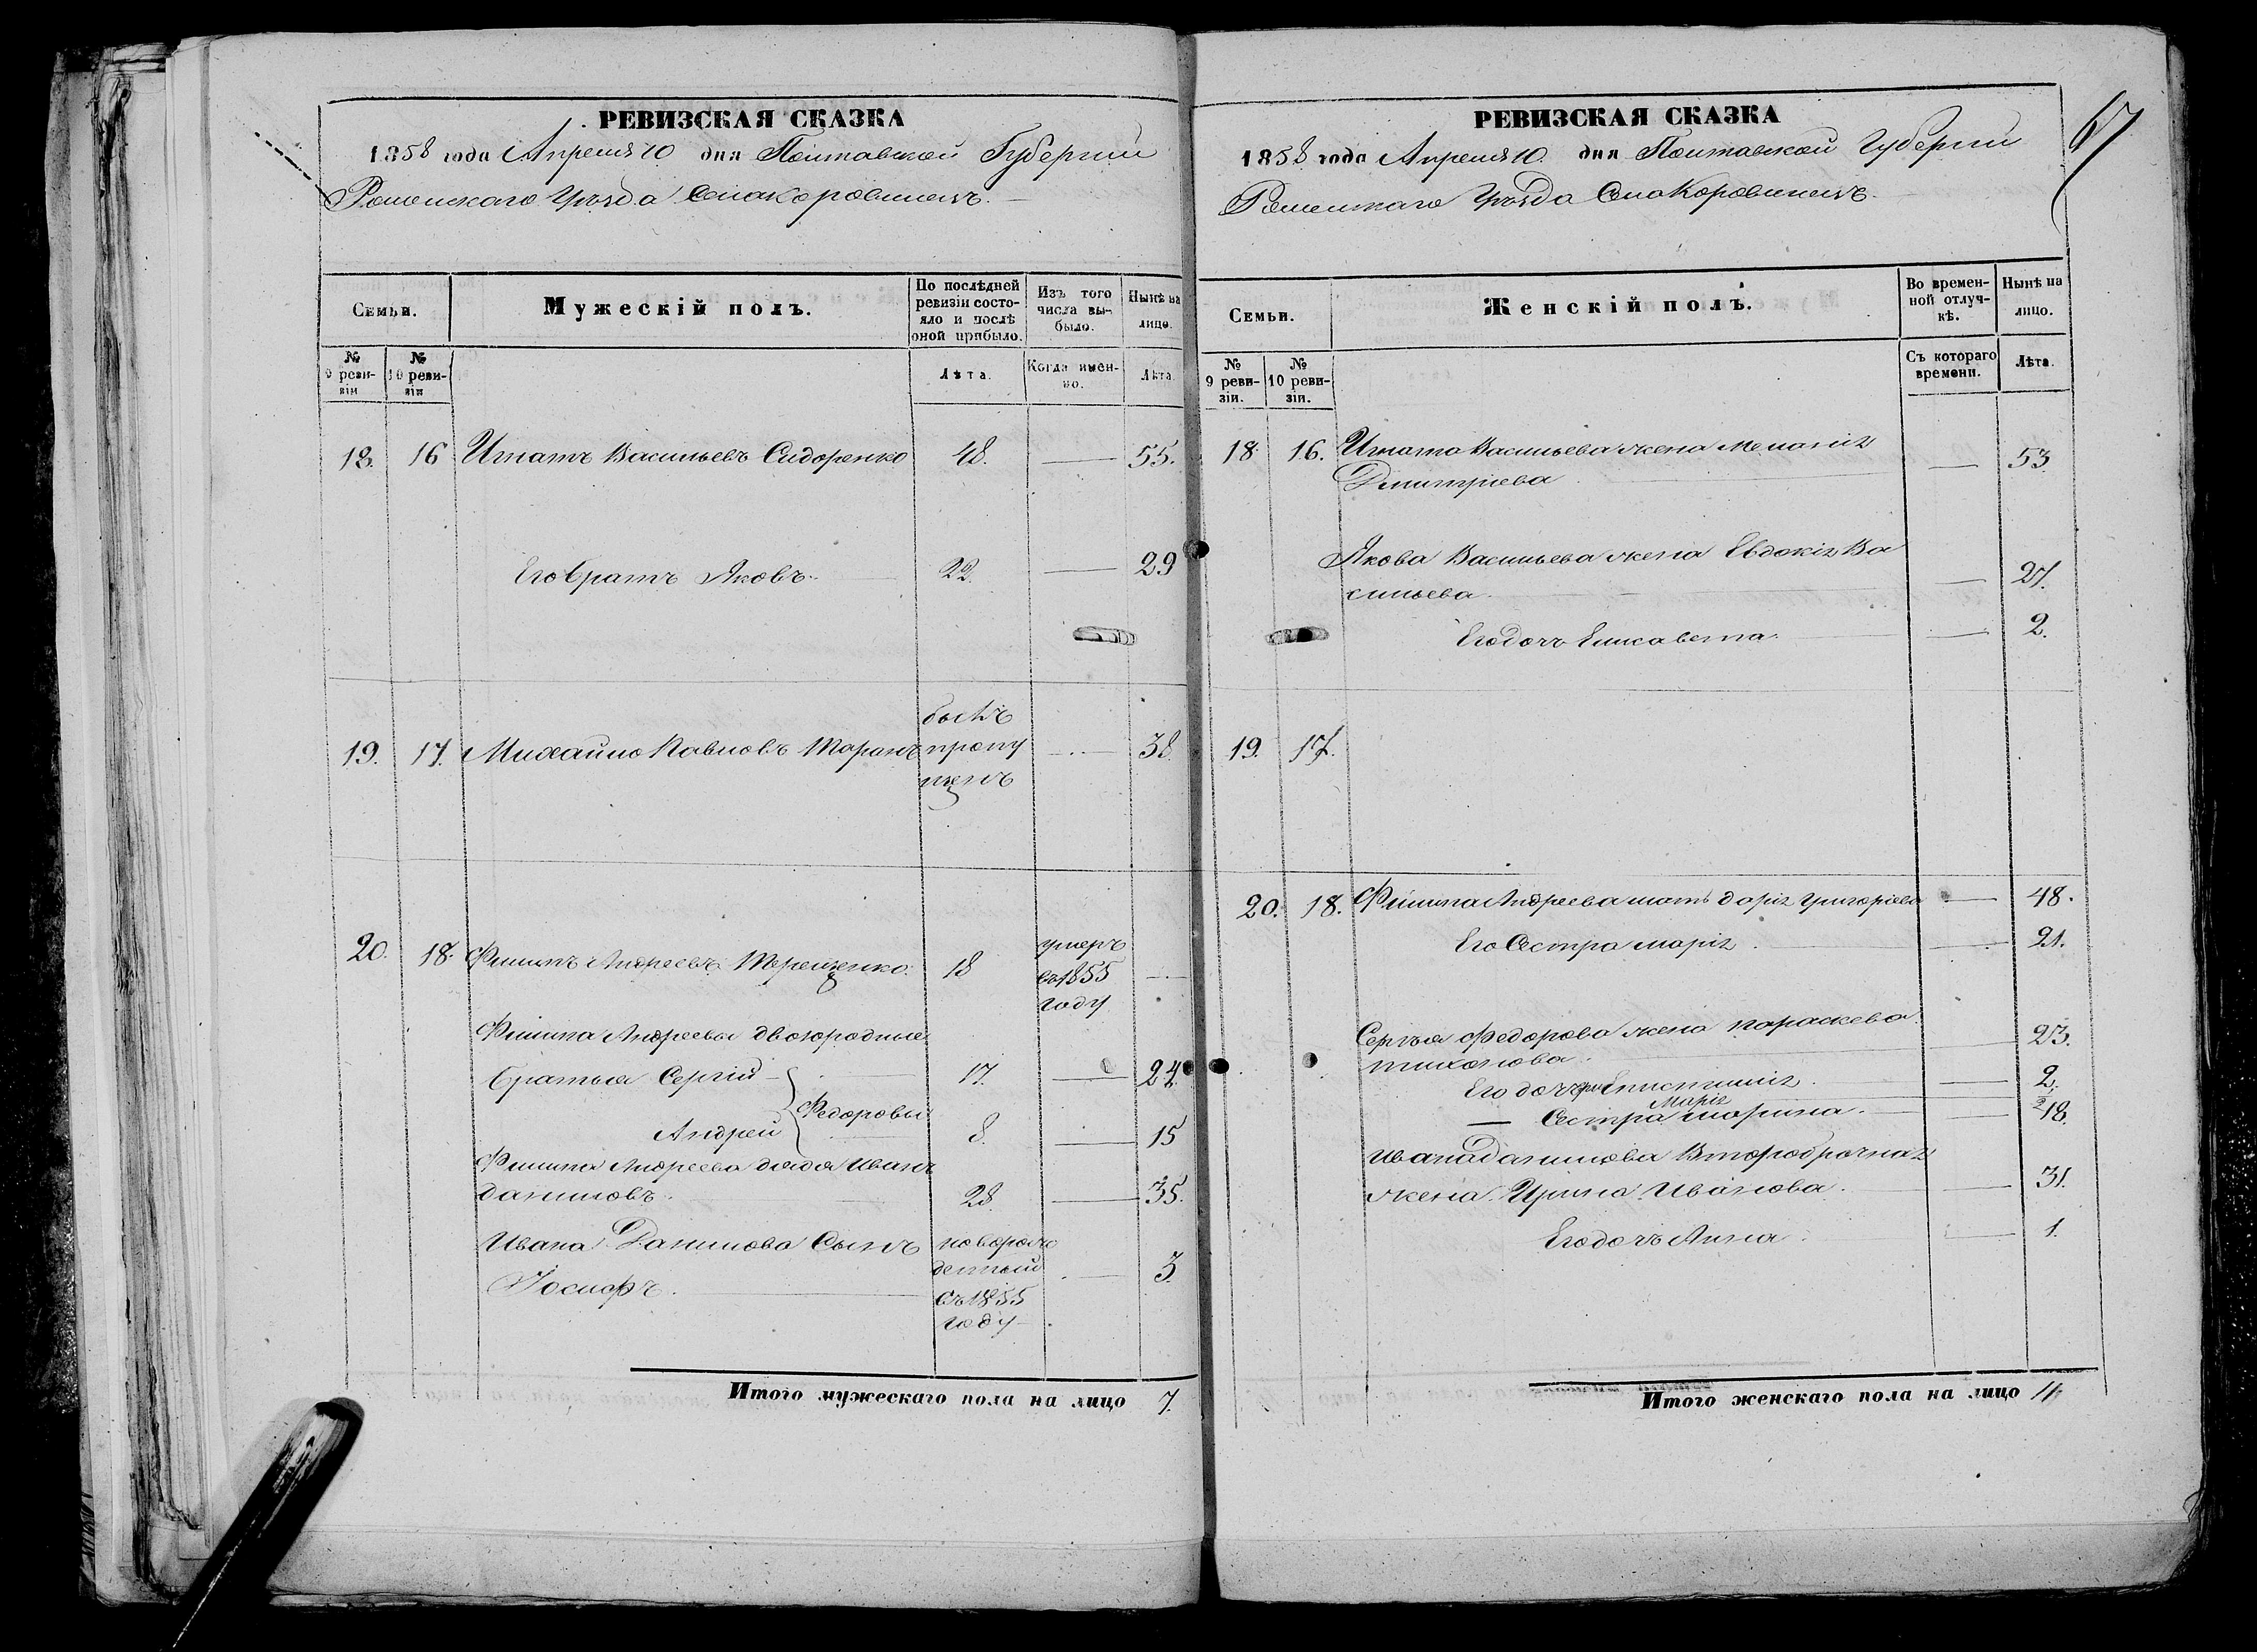 РЕВИЗСКАЯ СКАЗКА
1858 года Апреля 10 дня Полтавской Губернии
Роменскаго Уѣзда Села Коровинецъ.
Семьи.
Мужескій полъ.
По послѣдней ревизіи состояло и послѣ оной прибыло.
Изъ того числа выбыло.
Нынѣ на лицо.
№ 9 ревизіи
№ 10 ревизіи
Лѣта.
Когда именно.
Лѣта.
18. 16 Игнатъ Васильевъ Сидоренко 48. — 55.
Его братъ Яковъ. 22. — 29
19. 17. Михайло Павловъ Таранъ былъ пропущенъ — 38.
20. 18. Филипъ Андреевъ Терещенко. 18 умеръ въ 1855 году —
Филипа Андреевы двоюродные
братья Сергій 17. — 24.
Федоровы
Андрей 8. — 15
Филипа Андреева дядя Иванъ
Даниловъ. 28. — 35.
Ивана Данилова Сынъ новорожденный
Іосифъ. въ 1855 году — 3.
Итого мужескаго пола на лицо 7.
67
РЕВИЗСКАЯ СКАЗКА
1858 года Апреля 10. дня Полтавской Губернии
Роменскаго Уѣзда Села Коровинецъ.
Семьи.
Женскій полъ.
Во временной отлучкѣ.
Нынѣ на лицо.
№ 9 ревизіи.
№ 10 ревизіи.
Съ котораго времени.
Лѣта.
18. 16. Игната Васильева жена Меланія
Дмитріева — 53
Якова Васильева жена Евдокія Ва
сильева. — 27.
Его дочь Елисавета. — 2.
19. 17.
20. 18. Филипа Андреева мать дарія Григоріева — 48.
Его Сестра марія. — 21.
Сергѣя Федорова жена параскева
тихонова. — 23.
Его дочери Епистимія. — 2.
Марія
— Сестра марина. — 18.
Ивана данилова Второбрачная
жена Ирина Иванова. — 31.
Его дочь Анна. — 1.
Итого женскаго пола на лицо 11